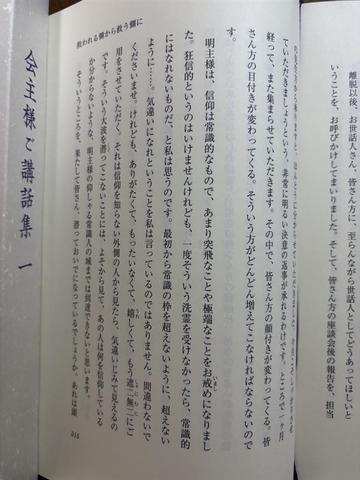 離脱以後、お世話人さん、皆さん方に、至らんながら世話人と
いうことを、お呼びかけしてまいりました。そして皆さん方の座談会後の報告を、担当
ていただきましょうという、非常に明るい決意の返事が承れるわけです。ところで一ヶ月
経って、また集まらせていただきます。その中で、皆さん方の顔付きが変わってくる。皆
さん方の目付きが変わってくる。そういう方がどんどん増えてこなければならないので
す。
明主様は、信仰は常識的なもので、あまり突飛なことや極端なことをお戒めになりまし
た。狂信的というのはいけませんけれども、一度そういう洗霊を受けなかったら、常識的
にはなれないものだ、と私は思うのです。最初から常識の枠を超えないように、超えない
ように……。気違いになれということを私は言っているのではありません。間違わないで
くださいませ。けれども、ありがたくて、もったいなくて、嬉しくて、もう遮二無二にご
用をさせていただく。それは信仰を知らない外側の人から見たら、気違いじみて見えるの
です。そういう大波を潜ってこないことには、よそから見て、あの人は何を信仰している
か分からないような、明主様の仰しゃる常識人の域までは到達できないと思います。
そういうところを、果たして皆さん、潜っておいでになっているでしょうか。あれは頭
救われる側から救う側に
315
会主様ご講話集 一